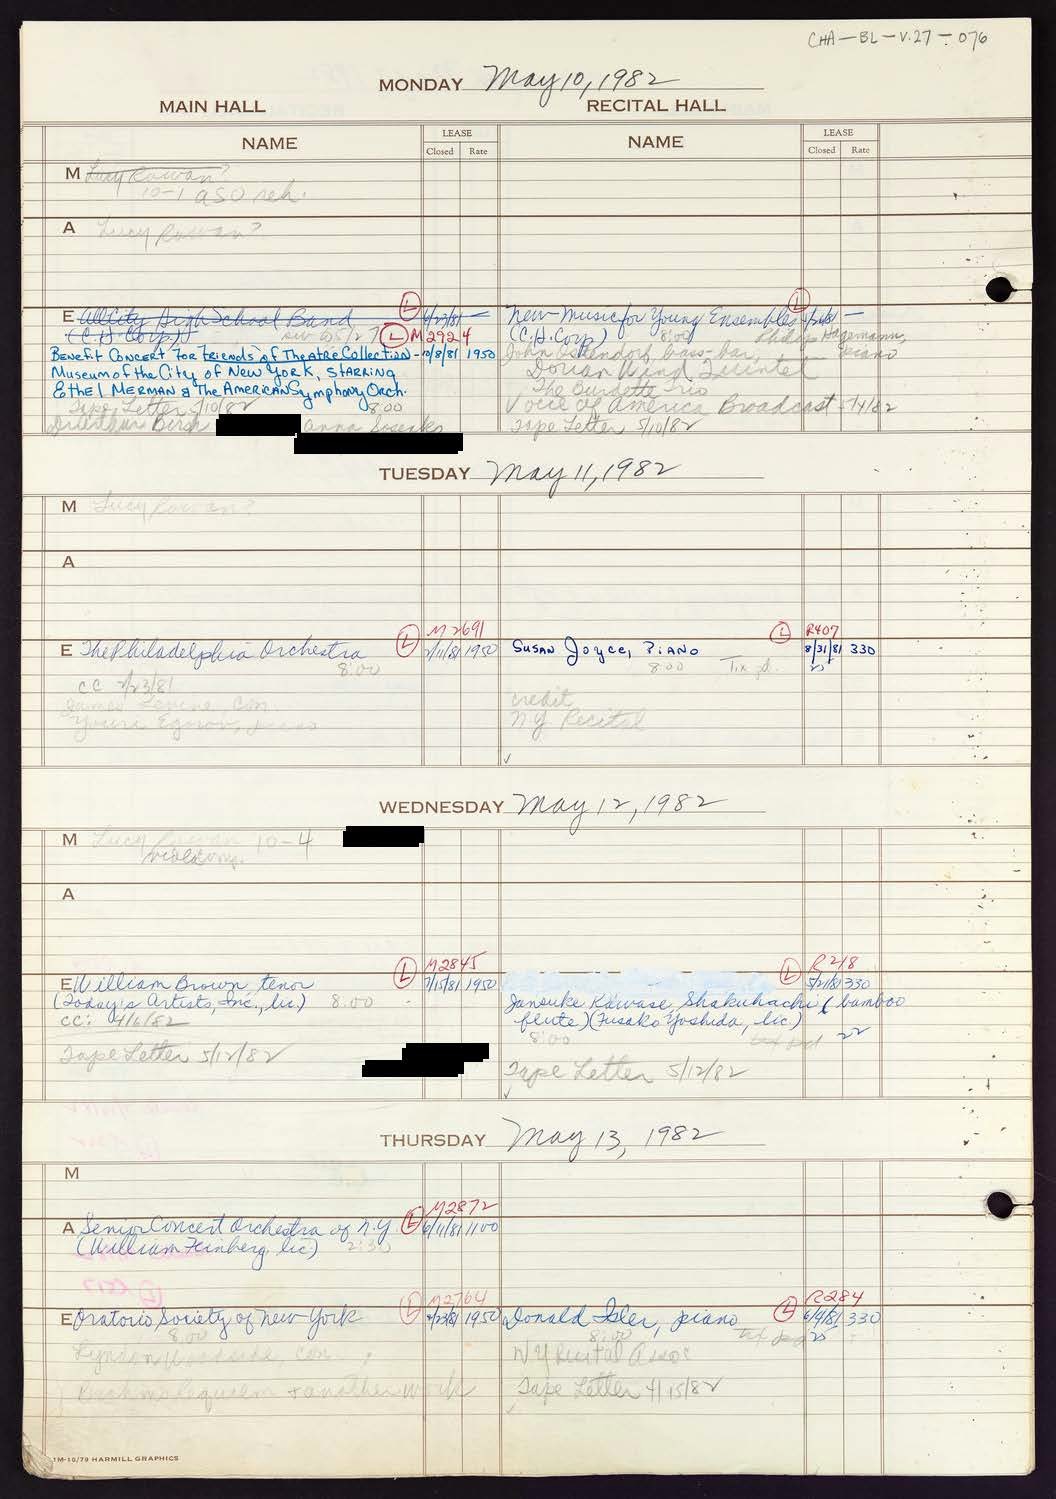 CHA-BL-V.27-076
MONDAY May 10, 1982
MAIN HALL RECITAL HALL
NAME LEASE NAME LEASE
Closed Rate Closed Rate
M Lucy Rowan?
10-1 ASO reh.
A Lucy Rowan?
E All City High School Band
(C.H. Corp.)
L M2924
Benefit Concert for Friends of Theatre Collection - 10/8/81 1950
Museum of the City of New York, starring
Ethel Merman & The American Symphony Orch.
Tape Letter 5/10/82 8:00
Birsh Anna
L
New Music for Young Ensembles
(C.H. Corp) 8:00 Philip Hagemann,
John Ostendorf, bass-bar, piano
Dorian Wind Quintet
The Burdette Trio
Voice of America Broadcast
Tape Letter 5/10/82
TUESDAY May 11, 1982
M Lucy Rowan?
A
E The Philadelphia Orchestra L M2691 1950
8:00
CC 2/23/81
James Levine, con.
Youri Egorov, piano
Susan Joyce, Piano L R407 8/31/81 330
8:00
credit
NY Recital
WEDNESDAY May 12, 1982
M Lucy Rowan 10-4
A
E William Brown, tenor L M2845 7/15/81 1950
(Today's Artists, Inc., lic) 8:00
CC: 4/6/82
Tape Letter 5/12/82
L R218 330
Janouke Kawase, Shakuhachi (bamboo
flute) (Fusako Yoshida, lic.)
8:00 22
Tape Letter 5/12/82
THURSDAY May 13, 1982
M
A Senior Concert Orchestra of N.Y. L M2872 6/11/81 1100
(William Feinberg, lic) 2:30
E Oratorio Society of New York L M2764 1950
8:00
Lyndon Woodside con.
Brahms Requiem + another work
Donald Isler, piano L R284 6/9/81 330
8:00 25
NY Recital Assoc
Tape Letter 4/15/82
1M-10/79 HARMILL GRAPHICS